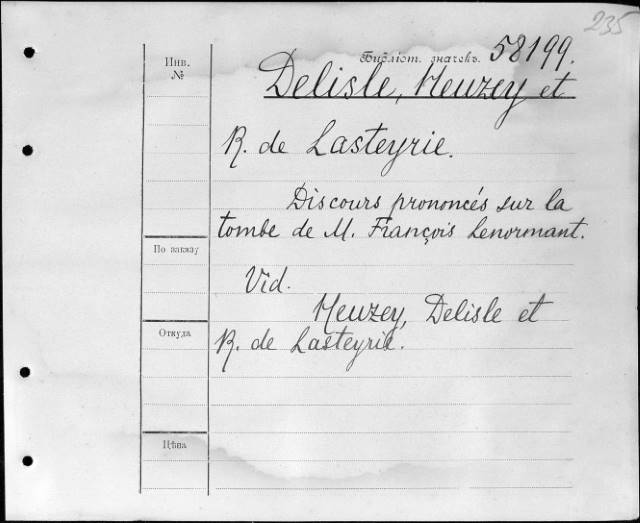 235
Библіот. значекъ. 58199.
Инв.
№
Delisle, Heuzey et
R. de Lasteyrie.
Discours prononcés sur la
tombe de M. François Lenormant.
По заказу
Vid.
Heuzey, Delisle et
Откуда
R. de Lasteyrie.
Цѣна